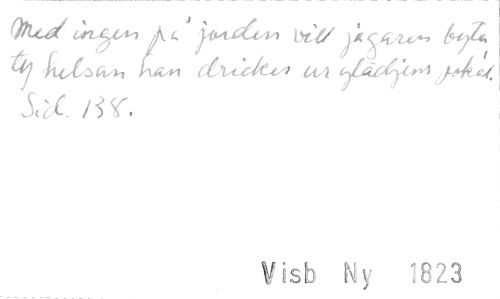 Med ingen på jorden vill jägaren byta
ty helsan han dricker ur glädjens pokal.
Sid. 138.
Visb Ny 1823